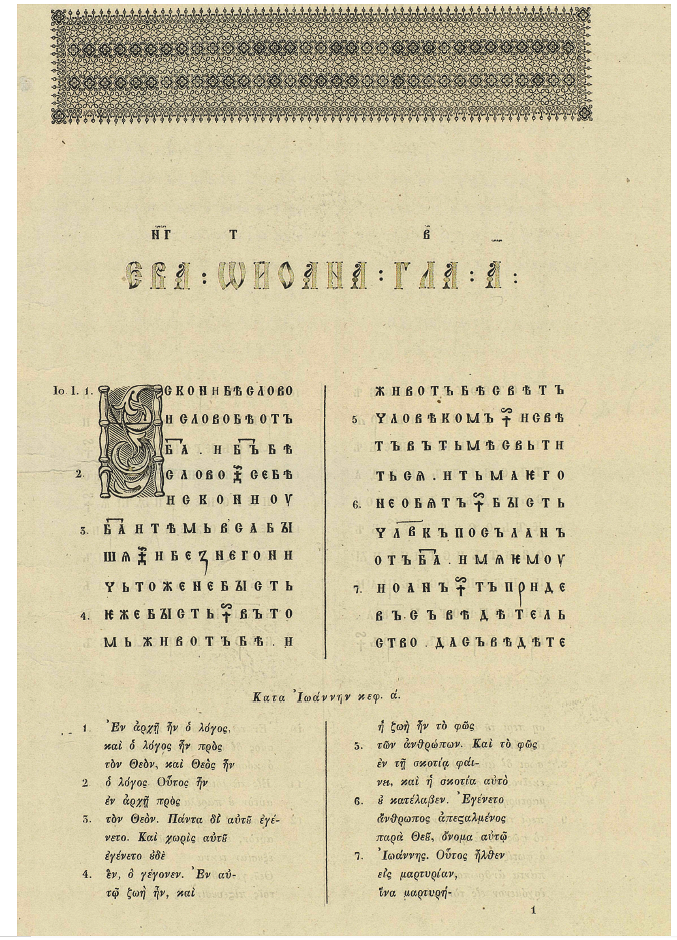 н҃г т в҃
ЕВА : ѠИОАНА : ГЛА : А҃ :
Io. I. 1. ИСКОНИБѢСЛОВО
ИСЛОВОБѢОТЪ
Б҃А . ИБ҃ЪБѢ
2. СЛОВО ⁜ СЕБѢ
ИСКОНИОУ
3. Б҃АИТѢМЬВСАБЫ
ШѦ ⁜ ИБЕЗНЕГОНИ
ЧЬТОЖЕНЕБЫСТЬ
4. ѤЖЕБЫСТЬ ⁜ ВЪТО
МЬЖИВОТЪБѢ . И
ЖИВОТЪБѢСВѢТЪ
5 ЧЛОВѢКОМЪ ⁜ ИСВѢ
ТЪВЪТЬМѢСВЬТИ
ТЬСѦ . ИТЬМАѤГО
6. НЕОБѦТЪ ⁜ БЫСТЬ
ЧЛ҃ВКЪПОСЪЛАНЪ
ОТЪБ҃А . ИМѦѤМОУ
7. ИОАНЪ ⁜ ТЪПРИДЕ
ВЪСЪВѢДѢТЕЛЬ
СТВО . ДАСЪВѢДѢТЕ
Κατα Ἰωάννην κεφ. ά.
1 Ἐν ἀρχῇ ἦν ὁ λόγος,
καὶ ὁ λόγος ἦν πρὸς
τὸν Θεὸν, καὶ Θεὸς ἦν
2 ὁ λόγος. Οὗτος ἦν
ἐν ἀρχῇ πρὸς
3. τὸν Θεὸν. Πάντα δἰ αὐτȣ͂ ἐγέ-
νετο. Καὶ χωρὶς αὐτȣ͂
ἐγένετο ȣ̓δὲ
4. ἓν, ὁ γέγονεν. Ἐν αὐ-
τῷ ζωὴ ἦν, καὶ
ἡ ζωὴ ἦν τὸ φῶς
5. τῶν ἀνθρώπων. Καὶ τὸ φῶς
ἐν τῇ σκοτίᾳ φαί-
νει, καὶ ἡ σκοτία αὐτὸ
6. ȣ̓ κατέλαβεν. Ἐγένετο
ἄνθρωπος ἀπεϛαλμένος
παρὰ Θεȣ͂, ὄνομα αὐτῷ
7. Ἰωάννης. Οὗτος ἦλθεν
εἰς μαρτυρίαν,
ἵνα μαρτυρή-
1